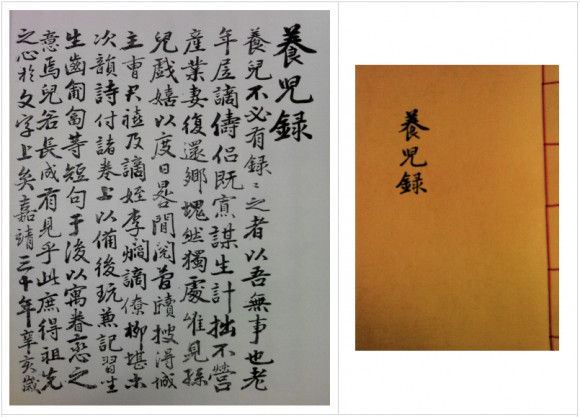 養兒録
養兒不必有録〻之者以吾無事也老
年居謫儔侶既寡謀生計拙不營
産業妻復還鄉塊然獨處唯見孫
兒戲嬉以度日晷閒閱舊牘搜得城
主曺君禧及謫姪李爓謫僚柳堪等
次韻詩付諸卷上以備後玩兼記習坐
生齒匍匐等短句于後以寓眷戀之
意焉兒若長成有見乎此庶得祖先
之心於文字上矣嘉靖三十年辛亥歲
養兒録